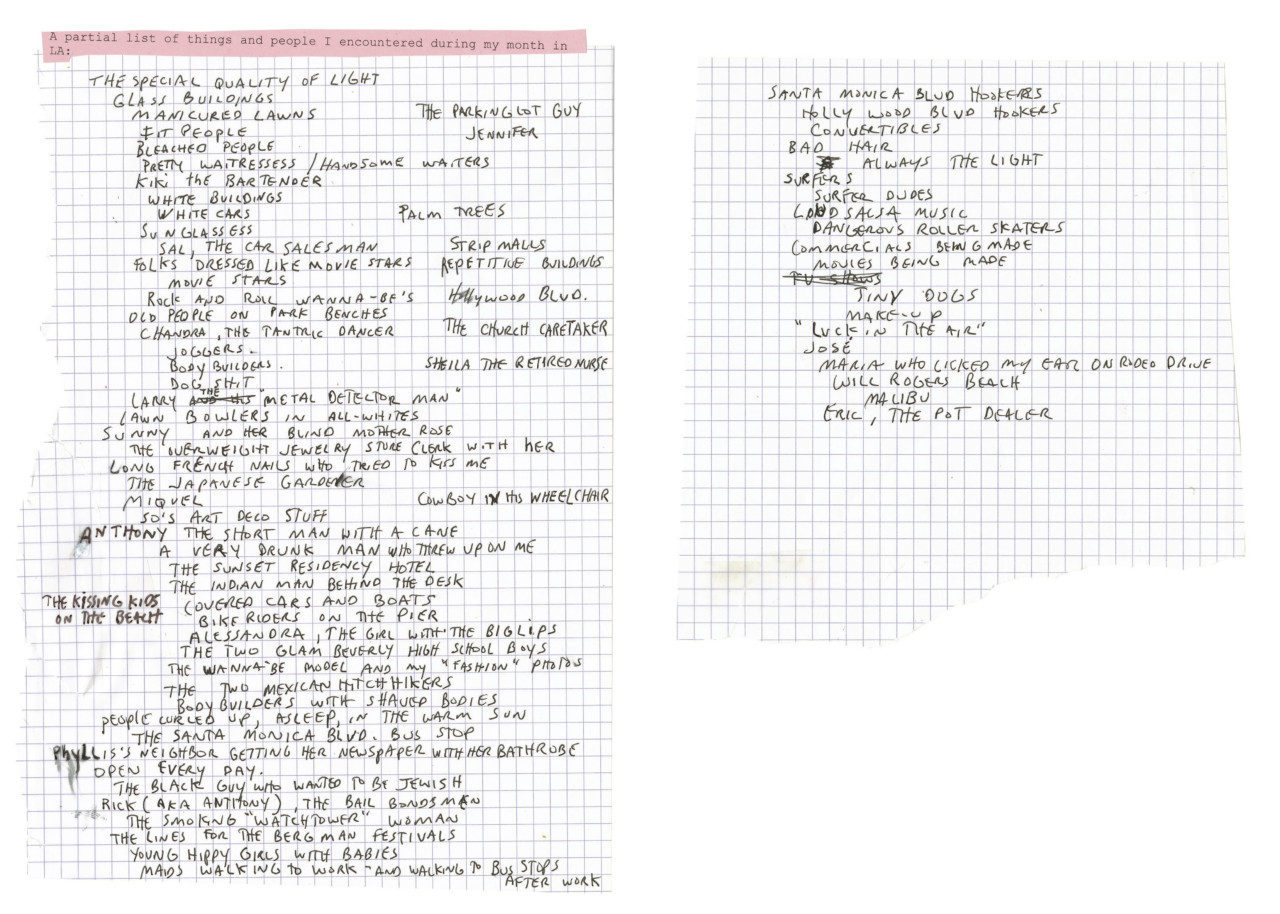 A partial list of things and people I encountered during my month in
LA:
THE SPECIAL QUALITY OF LIGHT
GLASS BUILDINGS
MANICURED LAWNS
THE PARKING LOT GUY
FIT PEOPLE
JENNIFER
BLEACHED PEOPLE
PRETTY WAITRESSESS / HANDSOME WAITERS
KiKi the BARTENDER
WHITE BUILDINGS
WHITE CARS
PALM TREES
SUNGLASSESS
SAL, THE CAR SALESMAN
STRIP MALLS
FOLKS DRESSED LIKE MOVIE STARS
REPETITIVE BUILDINGS
MOVIE STARS
ROCK AND ROLL WANNA-BE'S
Hollywood BLVD.
OLD PEOPLE ON PARK BENCHES
CHANDRA, THE TANTRIC DANCER
THE CHURCH CARETAKER
JOGGERS.
BODY BUILDERS.
SHEILA THE RETIRED NURSE
DOG SHIT
LARRY THE "METAL DETECTOR MAN"
LAWN BOWLERS IN ALL-WHITES
SUNNY AND HER BLIND MOTHER ROSE
THE OVERWEIGHT JEWELRY STORE CLERK WITH HER
LONG FRENCH NAILS WHO TRIED TO KISS ME
THE JAPANESE GARDENER
MIQUEL
COWBOY IN HIS WHEELCHAIR
50'S ART DECO STUFF
ANTHONY THE SHORT MAN WITH A CANE
A VERY DRUNK MAN WHO THREW UP ON ME
THE SUNSET RESIDENCY HOTEL
THE INDIAN MAN BEHIND THE DESK
THE KISSING KIDS
ON THE BEACH
COVERED CARS AND BOATS
BIKE RIDERS ON THE PIER
ALESSANDRA, THE GIRL WITH THE BIG LIPS
THE TWO GLAM BEVERLY HIGH SCHOOL BOYS
THE WANNA BE MODEL AND MY "FASHION" PHOTOS
THE TWO MEXICAN HITCHHIKERS
BODY BUILDERS WITH SHAVED BODIES
PEOPLE CURLED UP, ASLEEP, IN THE WARM SUN
THE SANTA MONICA BLVD. BUS STOP
PHYLLIS'S NEIGHBOR GETTING HER NEWSPAPER WITH HER BATHROBE
OPEN EVERY DAY.
THE BLACK GUY WHO WANTED TO BE JEWISH
RICK (AKA ANTHONY), THE BAIL BONDSMAN
THE SMOKING "WATCHTOWER" WOMAN
THE LINES FOR THE BERGMAN FESTIVALS
YOUNG HIPPY GIRLS WITH BABIES
MAIDS WALKING TO WORK - AND WALKING TO BUS STOPS
AFTER WORK
SANTA MONICA BLVD HOOKERS
HOLLY WOOD BLVD HOOKERS
CONVERTIBLES
BAD HAIR
ALWAYS THE LIGHT
SURFERS
SURFER DUDES
LOUD SALSA MUSIC
DANGEROUS ROLLER SKATERS
COMMERCIALS BEING MADE
MOVIES BEING MADE
TV SHOWS
TINY DOGS
MAKE-UP
"LUCK IN THE AIR"
JOSÉ
MARIA WHO LICKED MY EAR ON RODEO DRIVE
WILL ROGERS BEACH
MALIBU
ERIC, THE POT DEALER